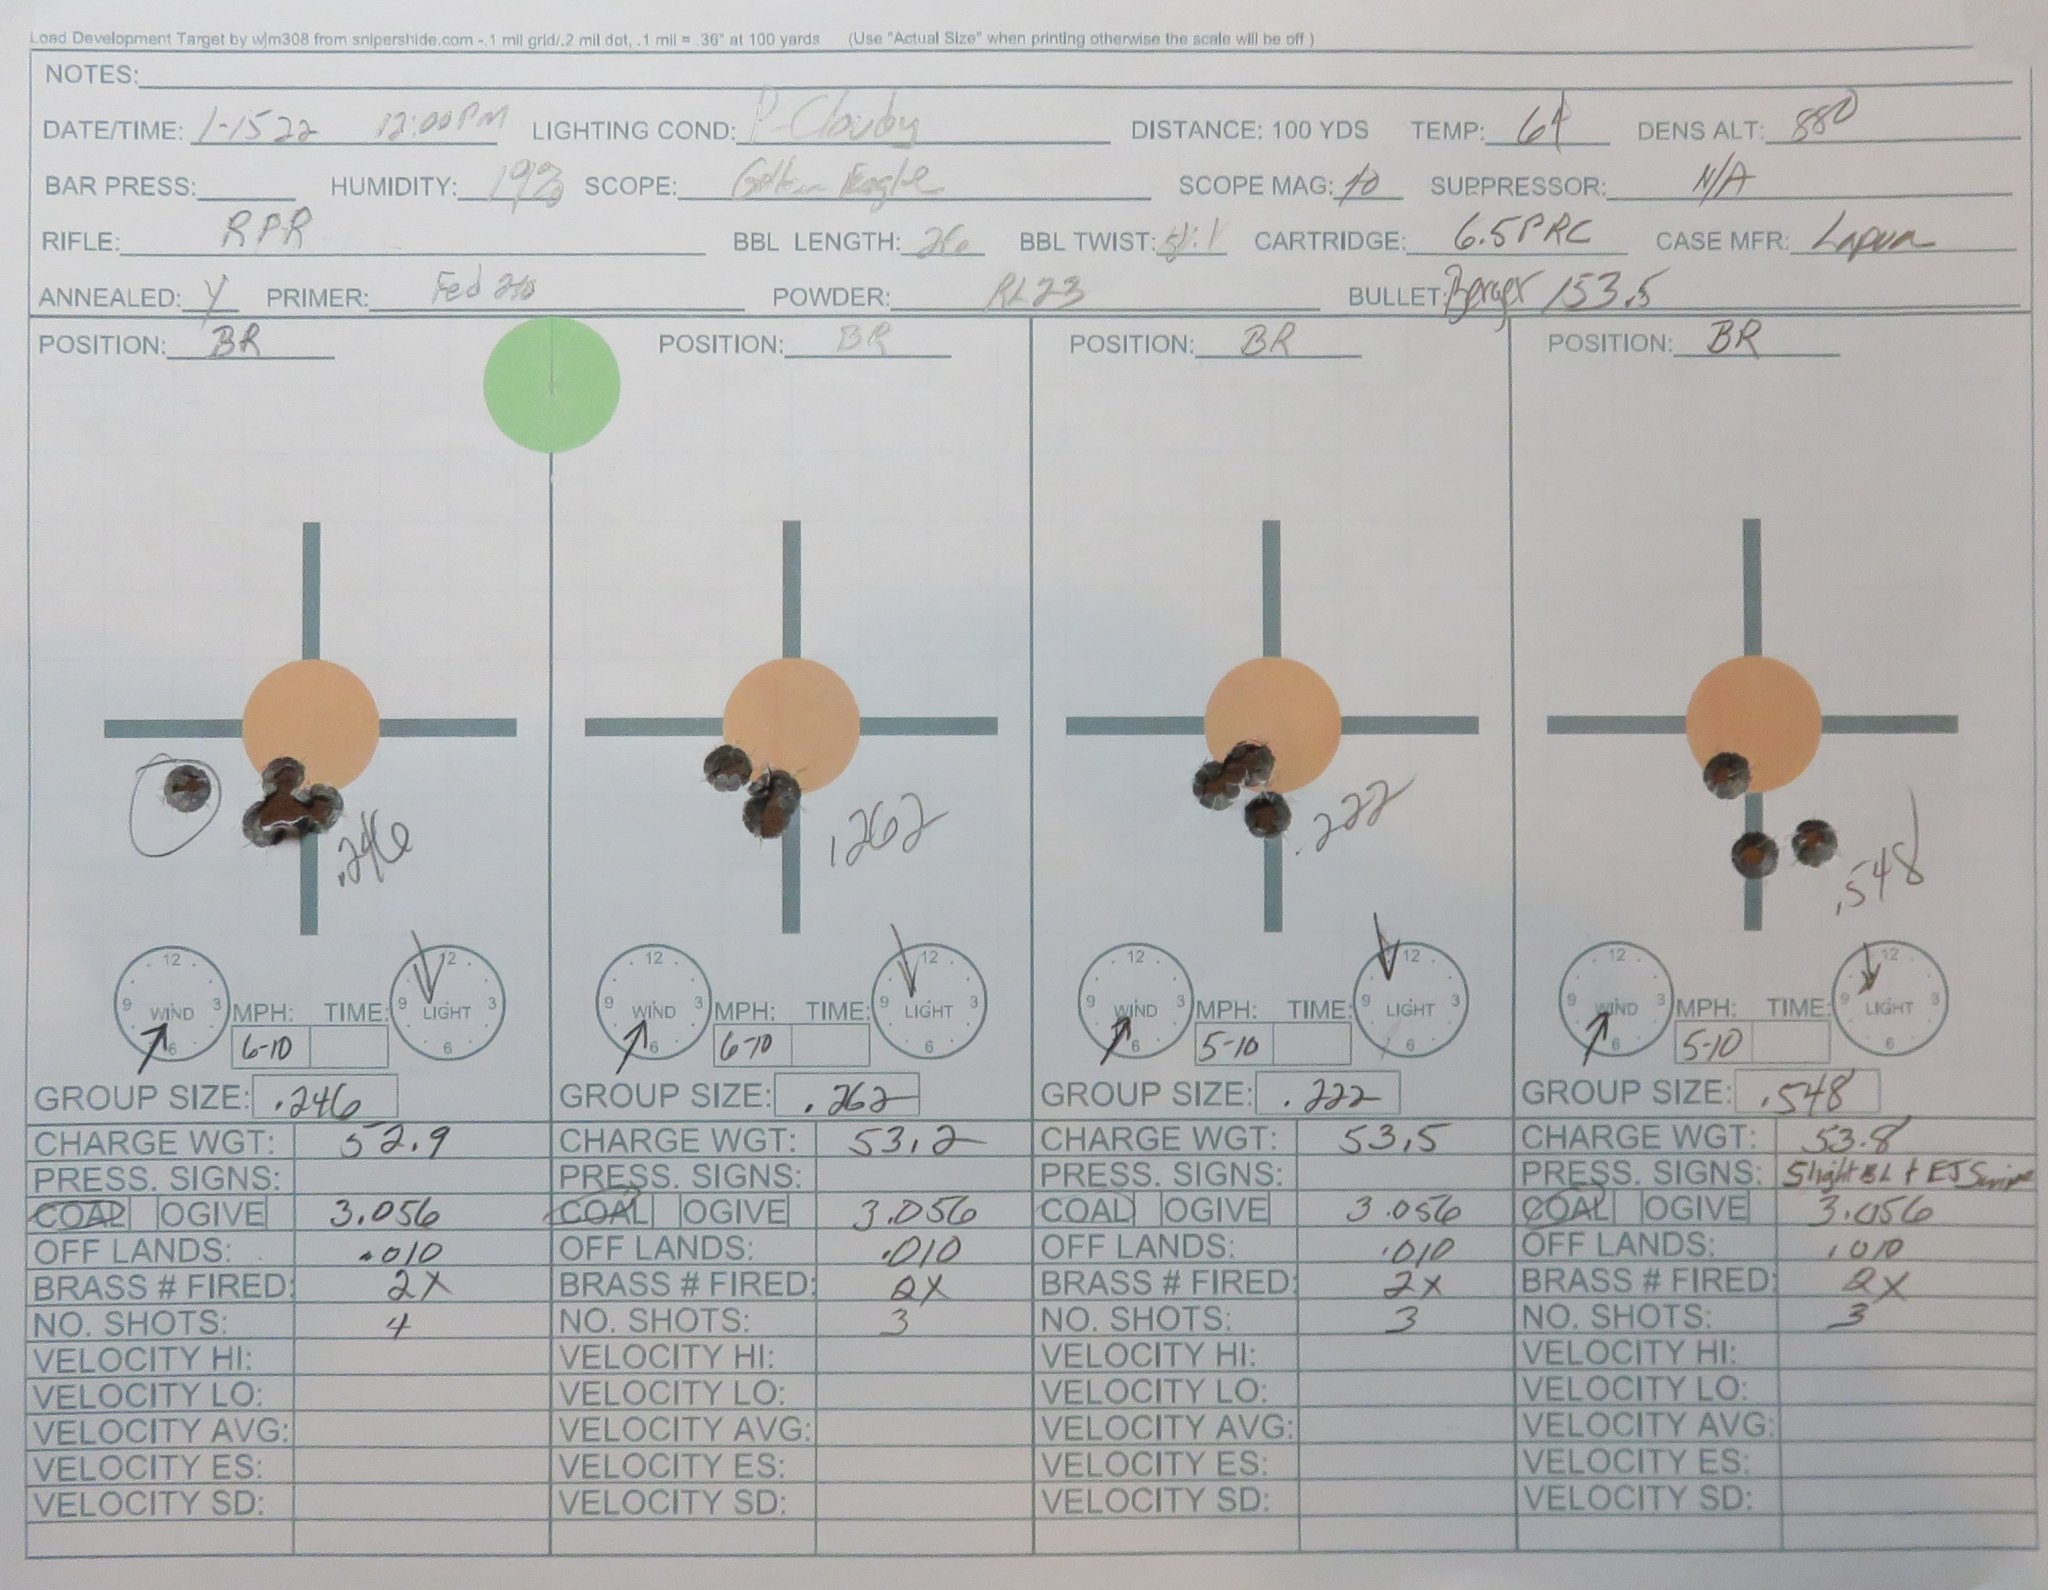 Load Development Target by wjm308 from snipershide.com - .1 mil grid/.2 mil dot, .1 mil = .36" at 100 yards (Use "Actual Size" when printing otherwise the scale will be off )
NOTES:
DATE/TIME: 1-15 22 12:00 PM LIGHTING COND: P-Cloudy DISTANCE: 100 YDS TEMP: DENS ALT: 880
BAR PRESS: HUMIDITY: 19% SCOPE: Golden Eagle SCOPE MAG: 40 SUPPRESSOR: N/A
RIFLE: RPR BBL LENGTH: 26 BBL TWIST: CARTRIDGE: 6.5 PRC CASE MFR: Lapua
ANNEALED: Y PRIMER: Fed 210 POWDER: RL23 BULLET: Berger 153.5
POSITION: BR POSITION: BR POSITION: BR POSITION: BR
.246 .262 .222 .548
12 9 3 6 WIND MPH: 6-10 TIME: 12 9 3 6 LIGHT
12 9 3 6 WIND MPH: 6-10 TIME: 12 9 3 6 LIGHT
12 9 3 6 WIND MPH: 5-10 TIME: 12 9 3 6 LIGHT
12 9 3 6 WIND MPH: 5-10 TIME: 12 9 3 6 LIGHT
GROUP SIZE: .246 GROUP SIZE: .262 GROUP SIZE: .222 GROUP SIZE: .548
CHARGE WGT: 52.9 CHARGE WGT: 53.2 CHARGE WGT: 53.5 CHARGE WGT: 53.8
PRESS. SIGNS: PRESS. SIGNS: PRESS. SIGNS: PRESS. SIGNS: Slight BL + EJ
COAL OGIVE 3.056 COAL OGIVE 3.056 COAL OGIVE 3.056 COAL OGIVE 3.056
OFF LANDS: .010 OFF LANDS: .010 OFF LANDS: .010 OFF LANDS: .010
BRASS # FIRED: 2X BRASS # FIRED: 2X BRASS # FIRED: 2X BRASS # FIRED: 2X
NO. SHOTS: 4 NO. SHOTS: 3 NO. SHOTS: 3 NO. SHOTS: 3
VELOCITY HI: VELOCITY HI: VELOCITY HI: VELOCITY HI:
VELOCITY LO: VELOCITY LO: VELOCITY LO: VELOCITY LO:
VELOCITY AVG: VELOCITY AVG: VELOCITY AVG: VELOCITY AVG:
VELOCITY ES: VELOCITY ES: VELOCITY ES: VELOCITY ES:
VELOCITY SD: VELOCITY SD: VELOCITY SD: VELOCITY SD: